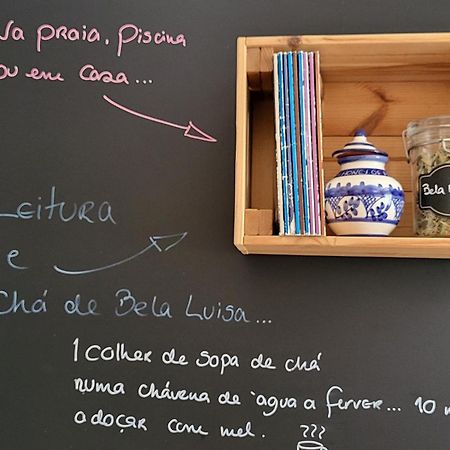 Na praia, Piscina
ou em casa...
Leitura
e
Chá de Bela Luisa...
1 colher de sopa de chá
numa chávena de água a ferver... 10
adoçar com mel.
Bela